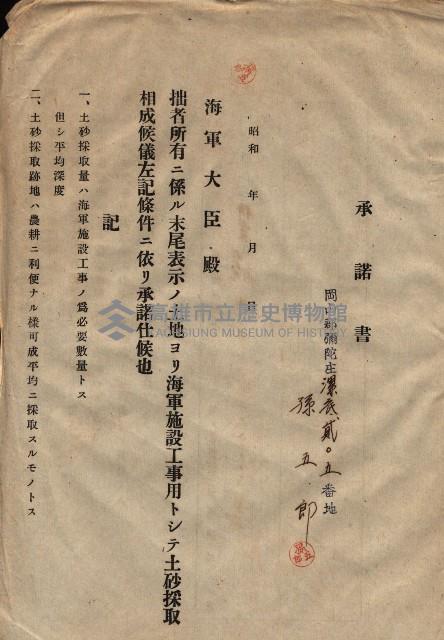 承諾書
岡山郡彌陀庄漯底貳〇五番地
孫五郎
昭和 年 月 日
海軍大臣殿
拙者所有ニ係ル末尾表示ノ土地ヨリ海軍施設工事用トシテ土砂採取
相成候儀左記條件ニ依リ承諾仕候也
記
一、土砂採取量ハ海軍施設工事ノ爲必要數量トス
但シ平均深度
二、土砂採取跡地ハ農耕ニ利便ナル樣可成平均ニ採取スルモノトス
高雄市立歷史博物館
KAOHSIUNG MUSEUM OF HISTORY